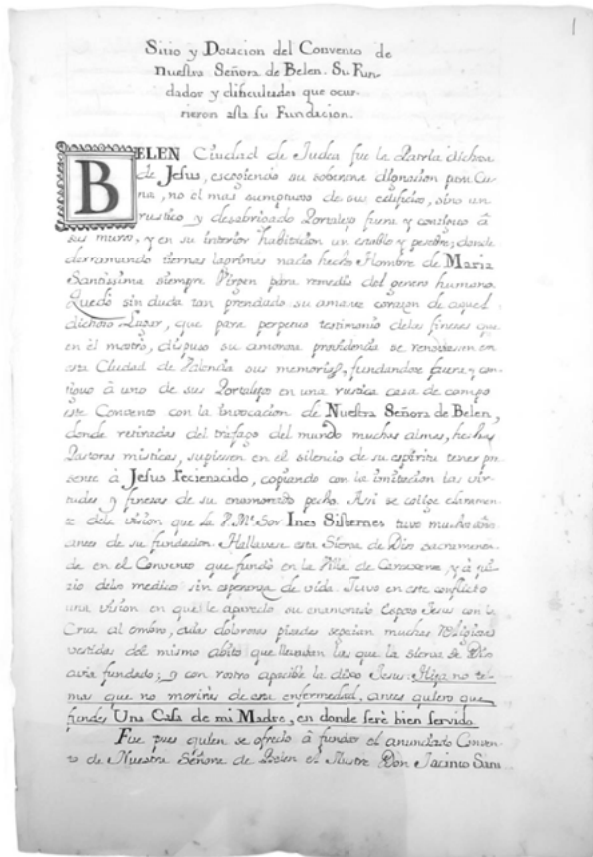 1
Sitio y Dotacion del Convento de
Nuestra Señora de Belen. Su Fun-
dador y dificultades que ocur-
rieron asta su Fundacion.
BELEN Ciudad de Judea fue la Patria dichosa
de Jesus, escogiendo su soberana dignacion para Cu-
na, no el mas sumptuoso de sus edificios, sino un
rustico y desabrigado Portalejo fuera y contiguo â
sus muros, y en su interior habitacion un establo y pesebre; donde
derramando tiernas lagrimas nacio hecho Hombre de Maria
Santissima siempre Virgen para remedio del genero humano.
Quedò sin duda tan prendado su amante corazon de aquel
dichoso Lugar, que para perpetuo testimonio delas finezas que
en èl mostrò, dispuso su amorosa providencia se renovassen en
esta Ciudad de Valencia sus memorias, fundandose fuera y con-
tiguo à uno de sus Portalejos en una rustica casa de campo
este Convento con la invocacion de Nuestra Señora de Belen,
donde retiradas del trafago del mundo muchas almas, hechas
Pastoras misticas, supiessen en el silencio de su espiritu tener pre
sente à Jesus recienacido, copiando con la imitacion las vir-
tudes y finezas de su enamorado pecho. Assi se colige claramen-
te dela vision que la V. Me. Sor Ines Sisternes tuvo muchos años
antes de su fundacion. Hallavase esta Sierva de Dios sacramenta-
da en el Convento que fundò en la Villa de Caravaca, y à jui-
zio delos medicos sin esperanza de vida. Tuvo en este conflicto
una vision en que le aparecio su enamorado Esposo Jesus con la
Cruz al ombro, cuias dolorosas pisadas seguian muchas Religiosas
vestidas del mismo abito que llevavan las que la Sierva de Dios
avia fundado; y con rostro apacible la dixo Jesus: Hija no te-
mas que no moriràs de esta enfermedad, antes quiero que
fundes Una Casa de mi Madre, en donde serè bien servido
Fue pues quien se ofrecio à fundar el anunciado Conven-
to de Nuestra Señora de Belen el Ilustre Don Jacinto Sans